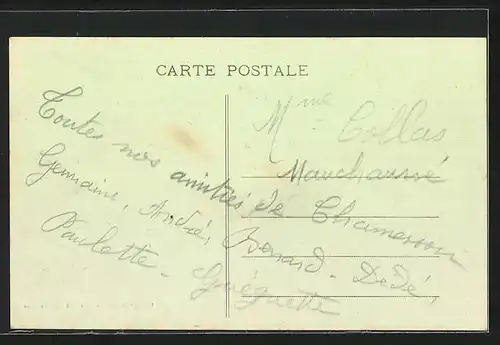 CARTE POSTALE
Mme Collas
Toutes nos amitiés de Chamesson
Germaine, André, Bernard - Dédé,
Paulette -